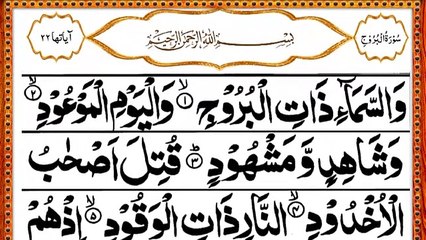 سُوْرَةُ الْبُرُوْجِ بِسْمِ اللّٰهِ الرَّحْمٰنِ الرَّحِيْمِ آیاتها ٢٢
وَالسَّمَآءِ ذَاتِ الْبُرُوْجِ ۙ﴿١﴾ وَالْيَوْمِ الْمَوْعُوْدِ ۙ﴿٢﴾
وَشَاهِدٍ وَّمَشْهُوْدٍ ؕ﴿٣﴾ قُتِلَ اَصْحٰبُ
الْاُخْدُوْدِ ۙ﴿٤﴾ النَّارِ ذَاتِ الْوَقُوْدِ ۙ﴿٥﴾ اِذْ هُمْ